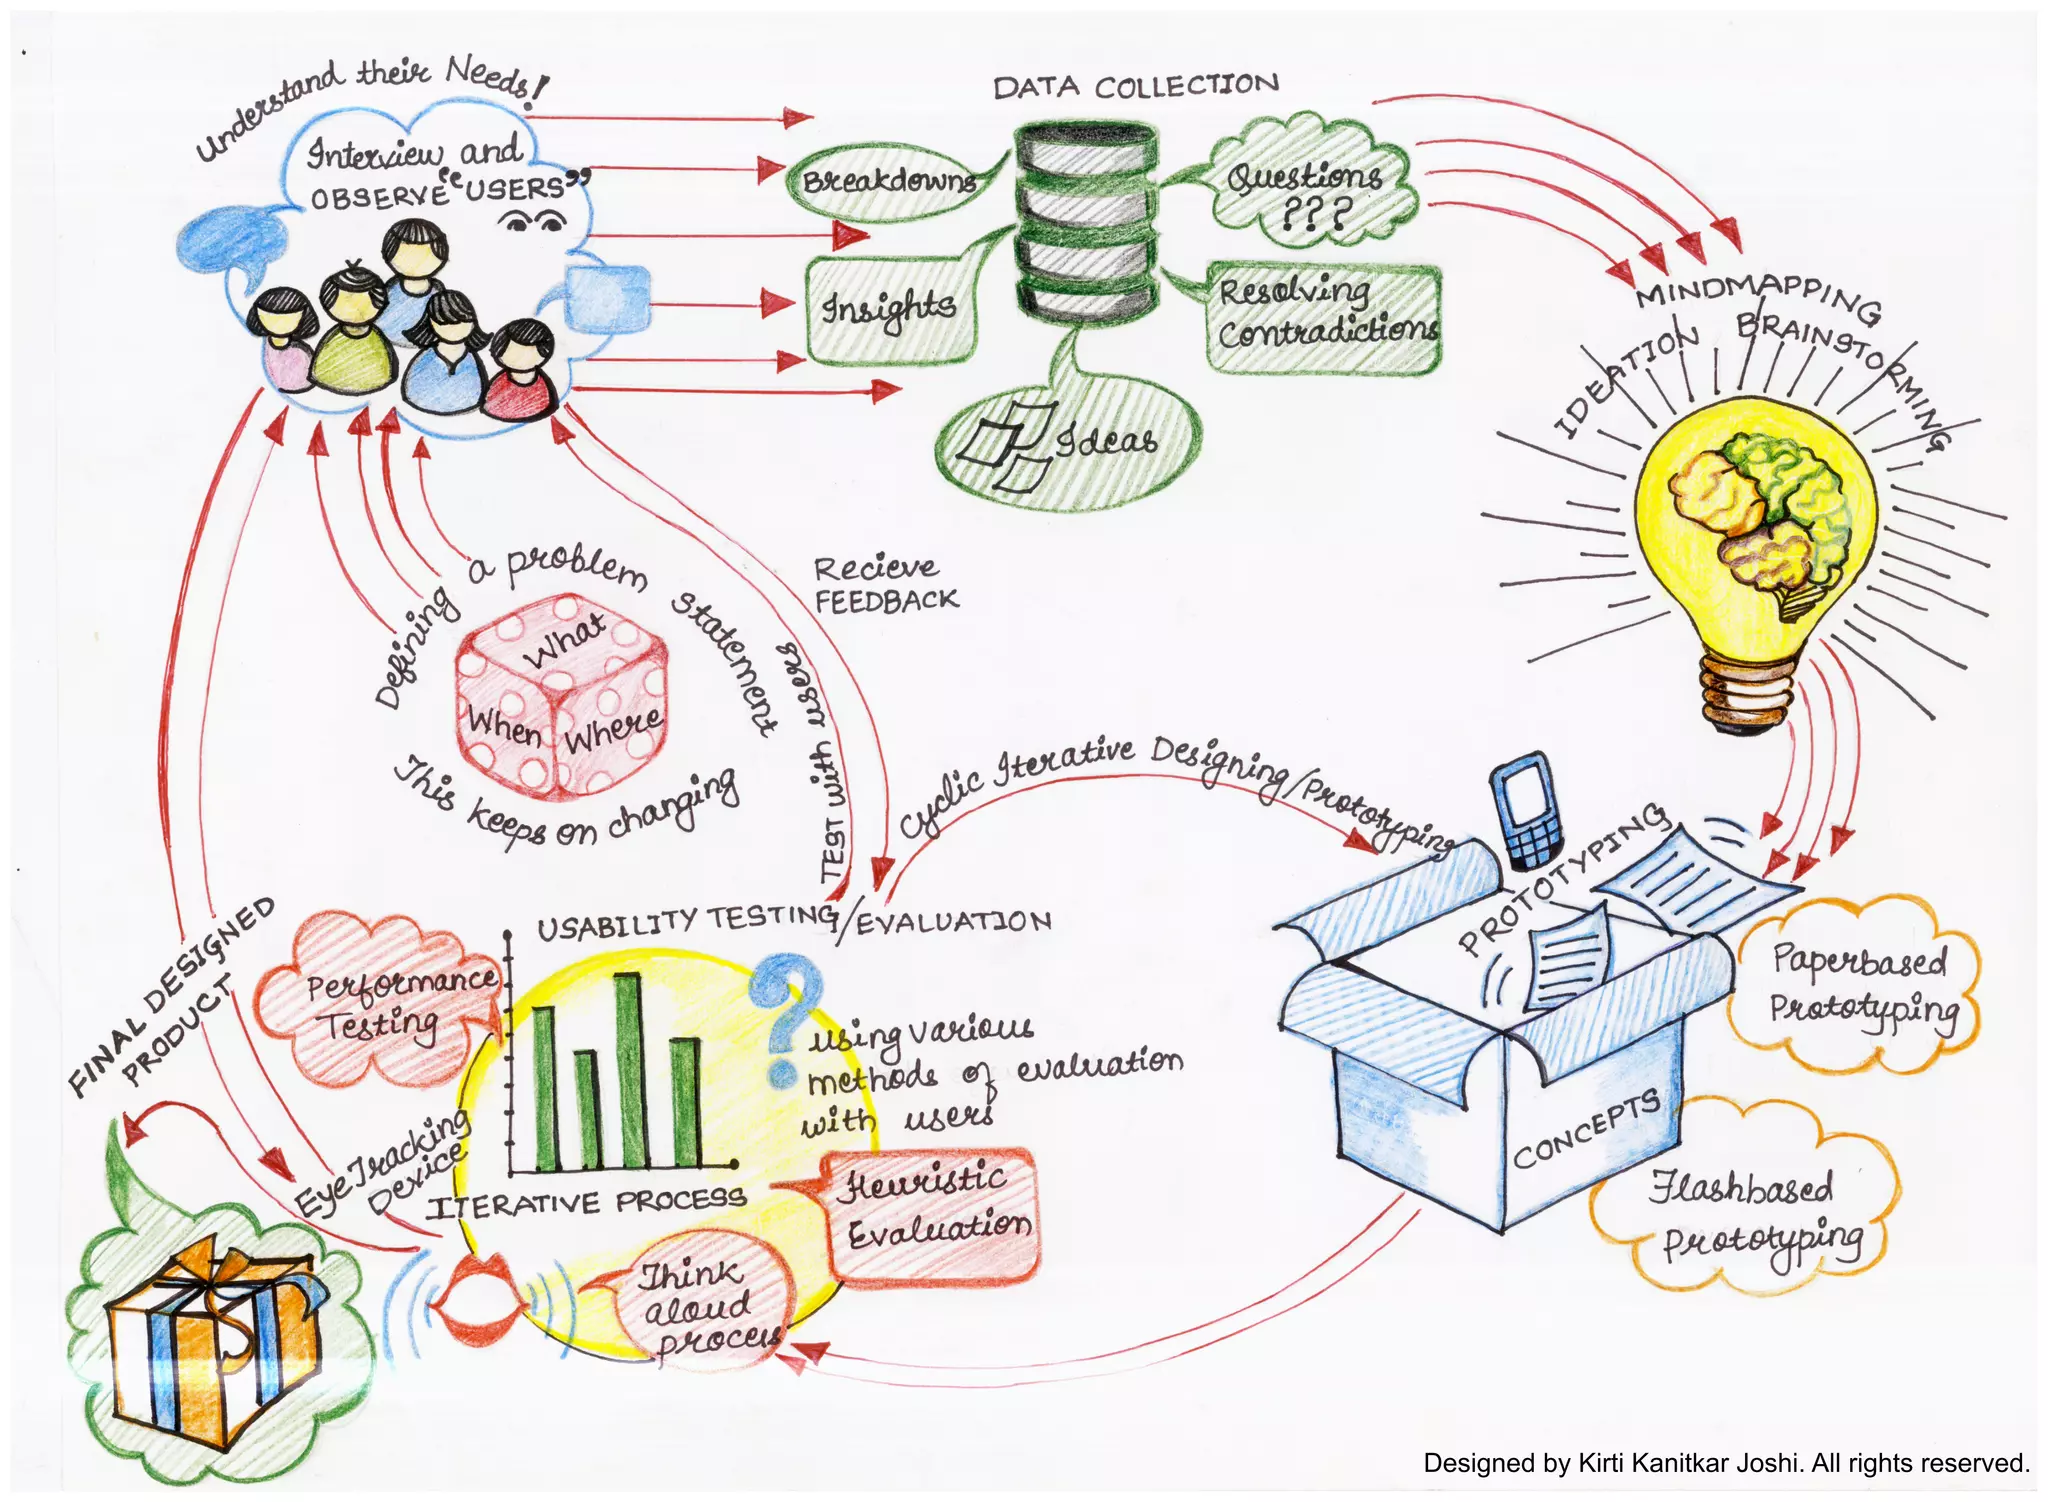 Understand their Needs!
Interview and
OBSERVE "USERS"
DATA COLLECTION
Breakdowns
Questions
???
Insights
Resolving
Contradictions
Ideas
MINDMAPPING
IDEATION
BRAINSTORMING
Defining a problem statement
What
When
Where
This keeps on changing
RECIEVE
FEEDBACK
TEST with users
Cyclic Iterative Designing/Prototyping
PROTOTYPING
CONCEPTS
Paperbased
Prototyping
Flashbased
Prototyping
USABILITY TESTING/EVALUATION
Performance
Testing
?
using various
methods of evaluation
with users
EyeTracking
Device
ITERATIVE PROCESS
Heuristic
Evaluation
Think
aloud
process
FINAL DESIGNED
PRODUCT
Designed by Kirti Kanitkar Joshi. All rights reserved.